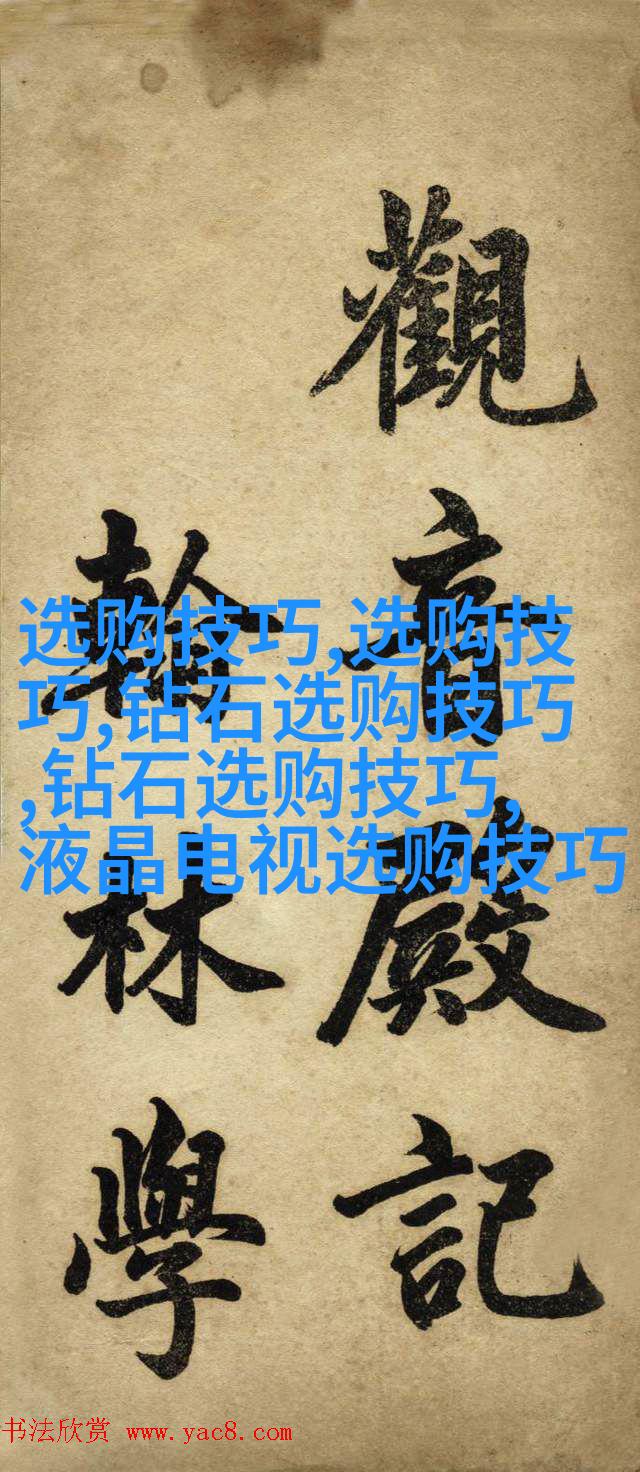 觀音殿記
翰林學
选购技巧,选购技
巧,钻石选购技巧
,钻石选购技巧,
液晶电视选购技巧
书法欣赏 www.yac8.com